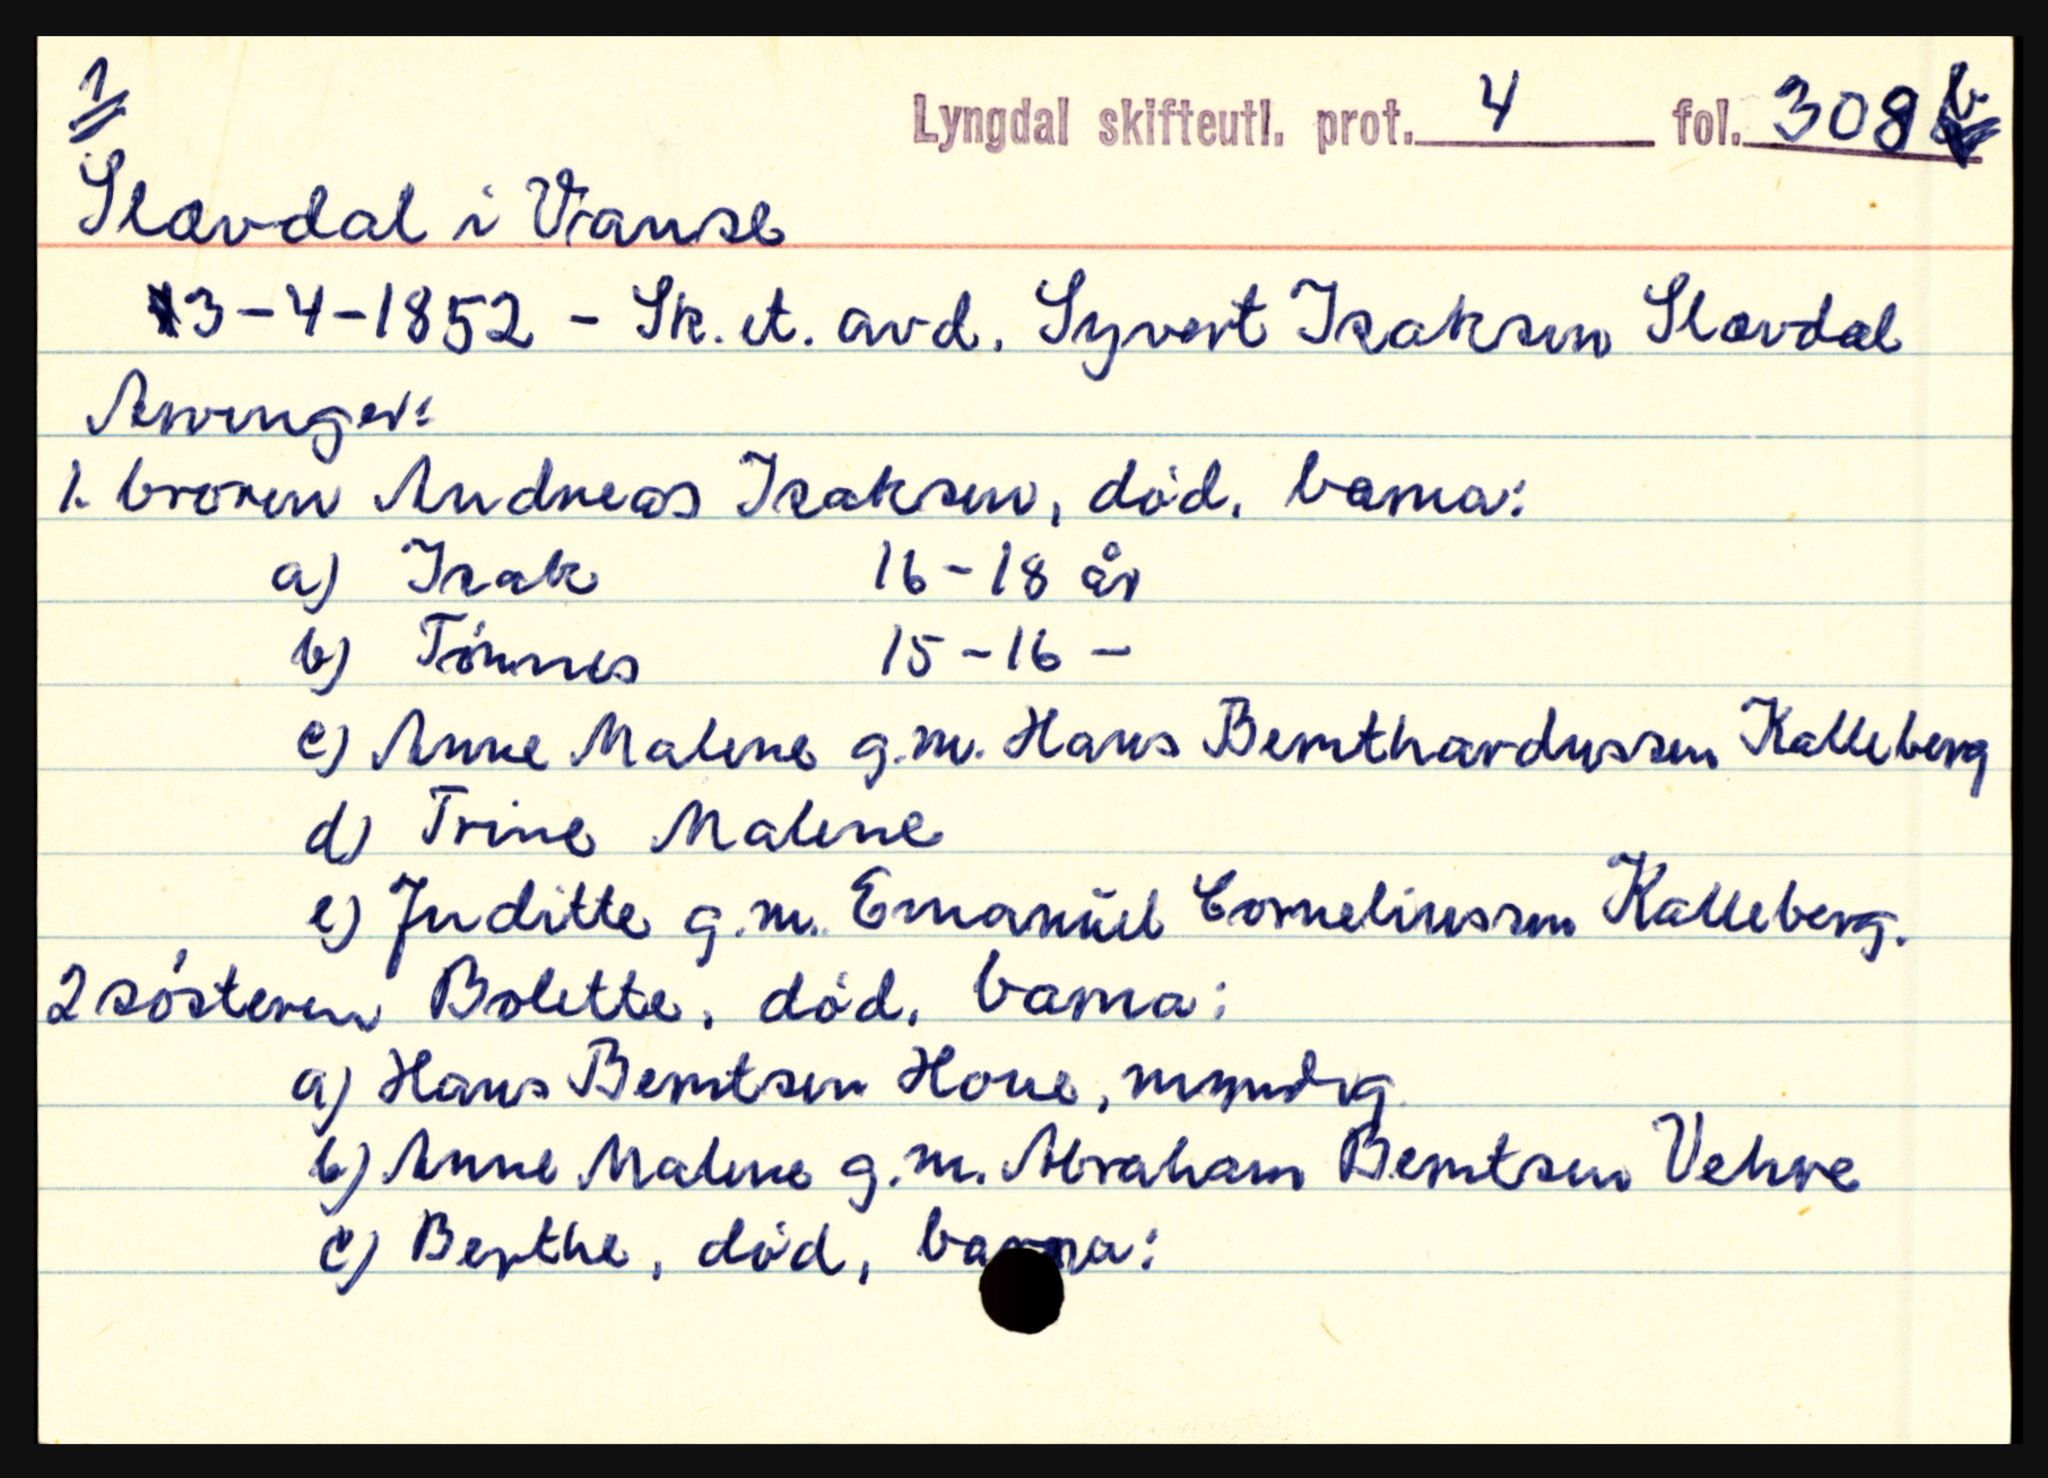 1
Lyngdal skifteutl. prot. 4 fol. 308 b
Slævdal i Vanse
13-4-1852 - Sk. et. avd. Syvert Isaksen Slævdal
Arvinger:
1. broren Andreas Isaksen, død. barna:
a) Isak 16-18 år
b) Tønnes 15-16 -
c) Anne Malene g.m. Hans Bernthardussen Kalleberg
d) Trine Malene
e) Juditte g.m. Emanuel Corneliussen Kalleberg.
2 søsteren Bolette, død, barna:
a) Hans Berntsen Houe, myndig
b) Anne Malene g.m. Abraham Berntsen Vehre
c) Berthe, død, barna: